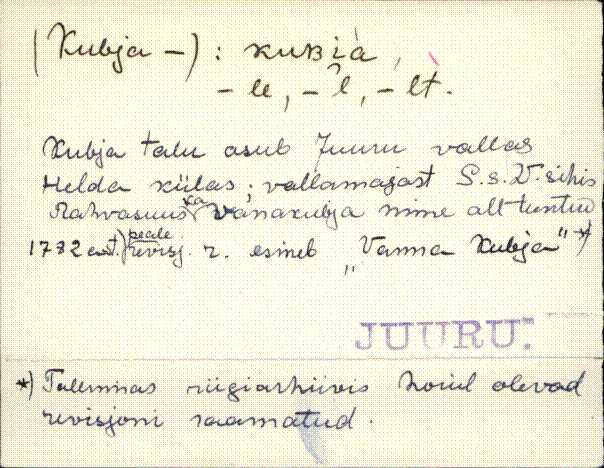 (Kubja –) : kuʙià,
– le, – l, – lt.
Kubja talu asub Juuru vallas
Helda külas; vallamajast S.s.V.-sihis
Rahvasuus ka Vanakubja nime all tuntud
1782 a. peale revisj. r. esineb „Vanna Kubja" *)
JUURU.
*) Tallinnas riigiarhiivis hoiul olevad
revisjoni raamatud.